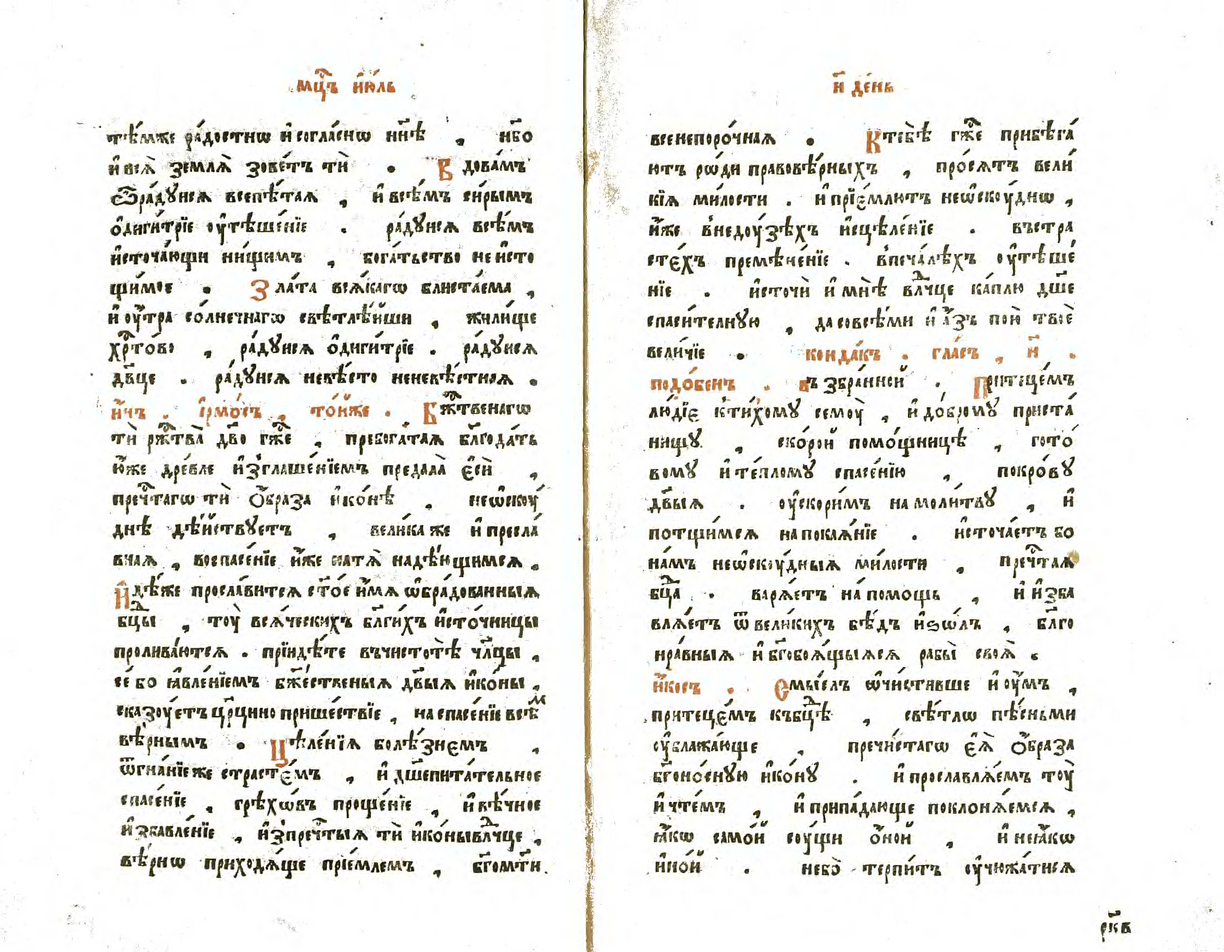 мц҇ъ і҆ю́ль
тѣ́мже ра́достнѡ и҆ согла́снѡ нн҃ѣ , и҆́бо
и҆ всѧ̀ землѧ̀ зове́тъ тѝ . Вдова́мъ
ѿра́дꙋисѧ всепѣ́таѧ , и҆ всѣ́мъ си́рымъ
ѻ҆диги́трїе ᲂу҆тѣше́нїе . ра́дꙋисѧ всѣ́мъ
и҆сточа́ющи ни́щимъ , бога́тьство неисто
щи́мое . Зла́та всѧ́кагѡ блиста́ема ,
и҆ ᲂу҆́тра со́лнечнагѡ свѣтлѣ́йши , жили́ще
хрⷭ҇то́во , ра́дꙋисѧ ѻ҆диги́трїе . ра́дꙋисѧ
дв҃це . ра́дꙋисѧ невѣ́сто неневѣ́стнаѧ .
и҆́нъ . і҆рмо́съ , то́йже . Бжⷭ҇твенагѡ
тѝ ржⷭ҇тва̀ дв҃о гж҃е , пребога́таѧ блгⷣа́ть
ю҆́же дре́вле и҆зглаше́нїемъ предала̀ є҆сѝ ,
пречⷭ҇тагѡ тѝ ѻ҆́браза и҆ко́нѣ , неѡ҆скꙋ́
днѣ дѣ́йствꙋетъ , вели́ка же и҆ пресла́
внаѧ , воспасе́нїе и҆́же натѧ̀ надѣ́ющимсѧ .
И҆дѣ́же просла́витсѧ ст҃ое и҆́мѧ ѡ҆бра́дованныѧ
бц҃ы , тоу̀ всѧ́ческихъ блг҃и́хъ и҆сто́чницы
пролива́ютсѧ . прїидѣ́те въчистотѣ̀ чл҃цы ,
се́ бо ꙗ҆вле́нїемъ бж҃е́ственыѧ дв҃ыѧ и҆ко́ны ,
ска́зꙋетъ цр҃и́цино прише́ствїе , на спасе́нїе всѣⷨ
вѣ́рнымъ . Цѣле́нїѧ болѣ́знемъ ,
ѿгна́нїе же страсте́мъ , и҆ дш҃епита́тельное
спасе́нїе , грѣхѡ́въ проще́нїе , и҆ вѣ́чное
и҆збавле́нїе , и҆зпречⷭ҇тыѧ тѝ и҆ко́ны влⷣчце ,
вѣ́рнѡ приходѧ́ще прїе́млемъ , бг҃ома́ти
и҃ де́нь
всенепоро́чнаѧ . Ктебѣ̀ гж҃е прибѣга́
ютъ ро́ди правовѣ́рныхъ , про́сѧтъ вели́
кїѧ ми́лости . и҆ прїе́млютъ неѡ҆скꙋ́днѡ ,
и҆́же внедꙋ́зѣхъ и҆сцѣле́нїе . въстра
сте́хъ премѣне́нїе . впеча́лѣхъ ᲂу҆тѣше́
нїе . и҆сточѝ и҆ мнѣ̀ влⷣчце ка́плю дш҃е
спаси́телнꙋю , да совсѣ́ми и҆ а҆́зъ пою̀ твоѐ
вели́чїе . конда́къ . гла́съ , и҃ .
подо́бенъ . въ збра́нней . Притеце́мъ
лю́дїе кти́хомꙋ семоу̀ , и҆ до́бромꙋ приста́
нищꙋ , ско́рой помо́щницѣ , гото́
вомꙋ и҆ те́пломꙋ спасе́нїю , покро́вꙋ
дв҃ыѧ . ᲂу҆ско́римъ на моли́твꙋ , и҆
потщи́мсѧ на покаѧ́нїе . и҆сточа́етъ бо
на́мъ неѡ҆скꙋ́дныѧ ми́лости , пречⷭ҇таѧ
бц҃а . варѧ́етъ на по́мощь , и҆ и҆зба
влѧ́етъ ѿ вели́кихъ бѣ́дъ и҆ ѕѡ́лъ , бл҃го
нра́вныѧ и҆ бг҃обоѧ́щыѧсѧ рабы̀ своѧ̀ .
и҆́косъ . Смы́слъ ѡ҆чи́стивше и҆ ᲂу҆́мъ ,
притеце́мъ къ бц҃ѣ , свѣ́тлѡ пѣ́сньми
ᲂу҆блажа́юще , пречи́стагѡ є҆ѧ̀ ѻ҆́браза
бг҃оно́снꙋю и҆ко́нꙋ . и҆ прославлѧ́емъ тоу̀
и҆ чте́мъ , и҆ припа́дающе поклонѧ́емсѧ ,
ꙗ҆́кѡ само́й сꙋ́щи ѻ҆́ной , и҆ неꙗ҆́кѡ
и҆но́й . небо̀ те́рпитъ ᲂу҆чюжа́тисѧ
рк҃в